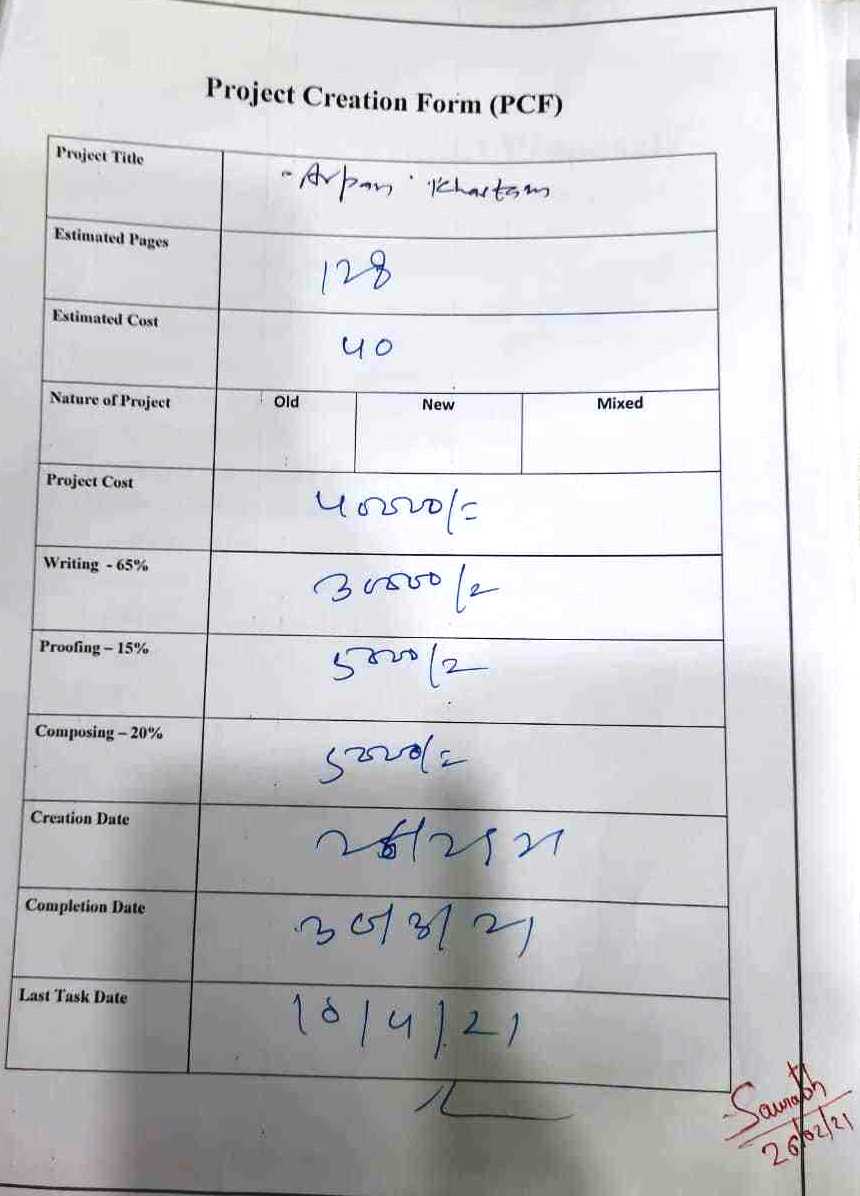 Project Creation Form (PCF)
Project Title - Arpan Khartam
Estimated Pages 128
Estimated Cost 40
Nature of Project Old New Mixed
Project Cost 40000/=
Writing - 65% 30000/=
Proofing – 15% 5000/=
Composing – 20% 5000/=
Creation Date 26/2/21
Completion Date 30/3/21
Last Task Date 10/4/21
Saurabh
26/02/21